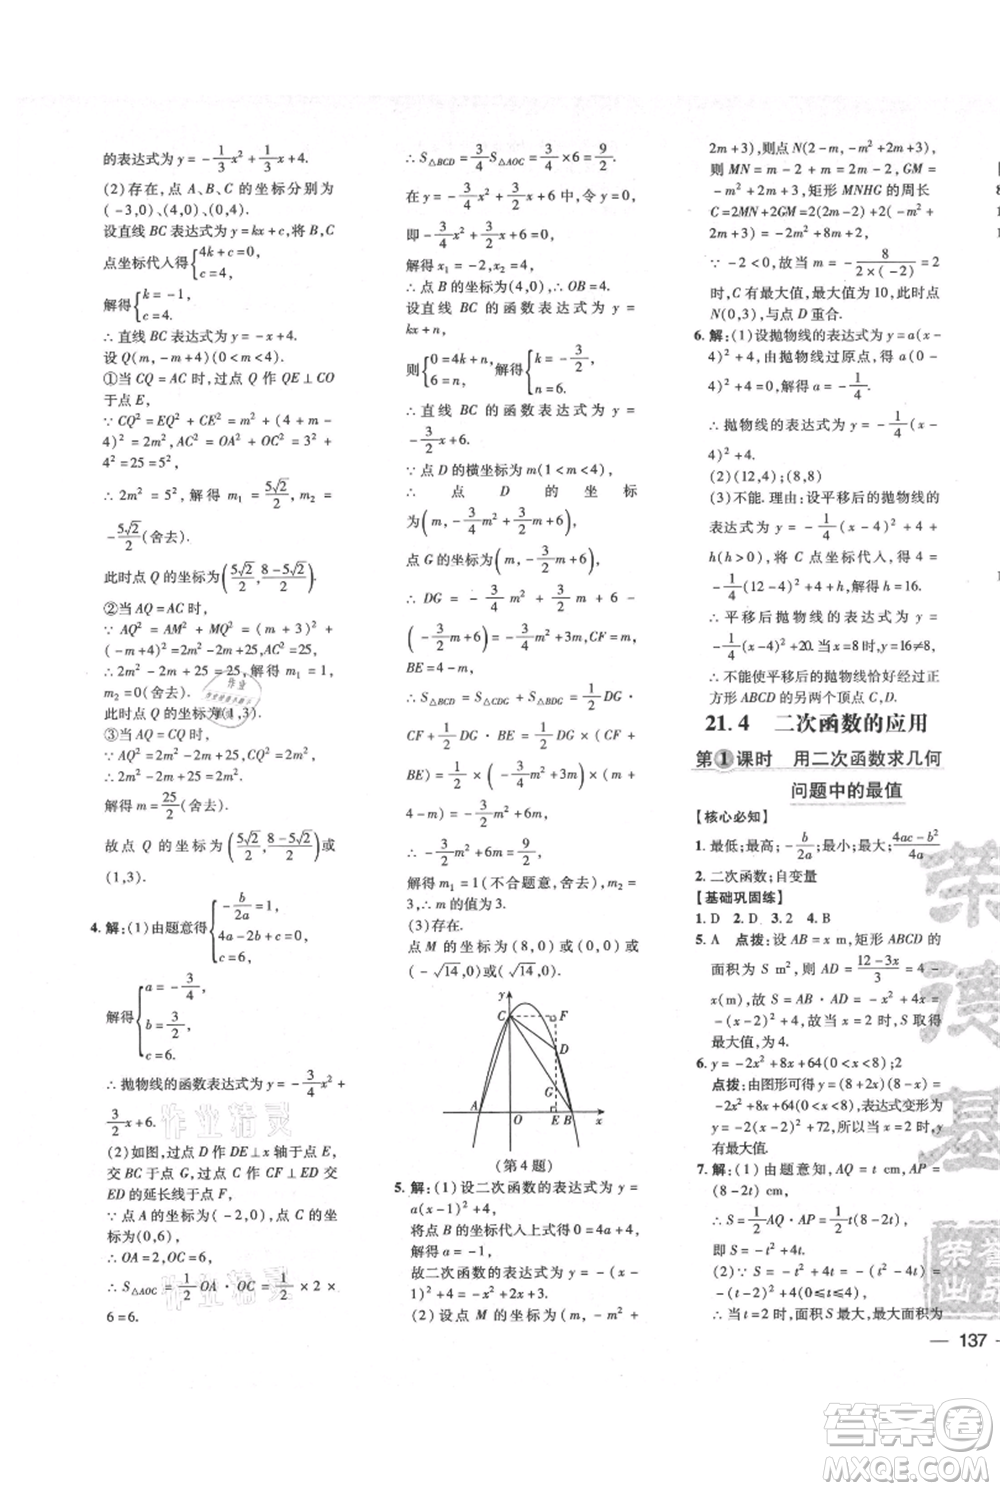 的表达式为 y = -1/3x²+1/3x+4.
(2)存在,点 A、B、C 的坐标分别为
(-3,0)、(4,0)、(0,4).
设直线 BC 表达式为 y=kx+c,将 B,C
点坐标代入得{4k+c=0, c=4.
解得{k=-1, c=4.
∴ 直线 BC 表达式为 y=-x+4.
设 Q(m,-m+4)(0<m<4)
①当 CQ=AC 时,过点 Q 作 QE⊥CO
于点 E,
∵ CQ²=EQ²+CE²=m²+(4+m-
4)²=2m²,AC²=OA²+OC²=3²+
4²=25=5²,
∴ 2m²=5²,解得 m₁=5√2/2,m₂=
-5√2/2(舍去).
此时点 Q 的坐标为(5√2/2,8-5√2/2).
②当 AQ=AC 时,
∵ AQ²=AM²+MQ²=(m+3)²+
(-m+4)²=2m²-2m+25,AC²=25,
∴ 2m²-2m=25-25,解得 m₁=1,
m₂=0(舍去).
此时点 Q 的坐标为(1,3).
③当 CQ=AQ 时,2m²=2m²-2m+25.
解得 m=25/2(舍去).
故点 Q 的坐标为(5√2/2,8-5√2/2)或
(1,3).
4. 解:(1)由题意得{-b/2a=1, 4a-2b+c=0, c=6.
解得{a=-3/4, b=3/2, c=6.
∴ 抛物线的函数表达式为 y=-3/4x²+
3/2x+6.
(2)如图,过点 D 作 DE⊥x 轴于点 E,
交 BC 于点 G,过点 C 作 CF⊥ED 交
ED 的延长线于点 F,
∵ 点 A 的坐标为(-2,0),点 C 的坐
标为(0,6),
∴ OA=2,OC=6,
∴ S△AOC=1/2OA·OC=1/2×2×
6=6.
∴ S△BCD=3/4S△AOC=3/4×6=9/2.
在 y=-3/4x²+3/2x+6 中,令 y=0,
即-3/4x²+3/2x+6=0,
解得 x₁=-2,x₂=4.
∴ 点 B 的坐标为(4,0),∴ OB=4.
设直线 BC 的函数表达式为 y=
kx+n,
则{0=4k+n, 6=n, 解得{k=-3/2, n=6.
∴ 直线 BC 的函数表达式为 y=
-3/2x+6.
∵ 点 D 的横坐标为 m(1<m<4),
∴ 点 D 的坐标
为(m,-3/4m²+3/2m+6),
点 G 的坐标为(m,-3/2m+6).
∴ DG=-3/4m²+3/2m+6-
(-3/2m+6)=-3/4m²+3m,CF=m,
BE=4-m,
∴ S△BCD=S△CDG+S△BDG=1/2DG·
CF+1/2DG·BE=1/2DG·(CF+
BE)=1/2×(-3/4m²+3m)(m+
4-m)=-3/2m²+6m,
∴ -3/2m²+6m=9/2.
解得 m₁=1(不合题意,舍去),m₂=
3,∴ m 的值为 3.
(3)存在.
点 M 的坐标为(8,0)或(0,0)或
(-√14,0)或(√14,0).
y
C F
D
G
A O E B x
(第 4 题)
5. 解:(1)设二次函数的表达式为 y=
a(x-1)²+4,
将点 B 的坐标代入上式得 0=4a+4,
解得 a=-1.
故二次函数的表达式为 y=
-(x-1)²+4=-x²+2x+3.
(2)设点 M 的坐标为(m,-m²+
2m+3),则点 N(2-m,-m²+2m+3),
则 MN=m-2+m=2m-2,GM=
-m²+2m+3,矩形 MNHG 的周长
C=2MN+2GM=2(2m-2)+
2(-m²+2m+3)=-2m²+8m+2.
∵ -2<0,故当 m=-8/2×(-2)=2
时,C 有最大值,最大值为 10,此时点
N(0,3),与点 D 重合.
6. 解:(1)设抛物线的表达式为 y=a(x-
4)²+4,由抛物线过原点,得 a(0-
4)²+4=0,解得 a=-1/4.
∴ 抛物线的表达式为 y=-1/4(x-
4)²+4.
(2)(12,4);(8,8)
(3)不能. 理由:设平移后的抛物线的
表达式为 y=-1/4(x-4)²+4+
h(h>0),将 C 点坐标代入,得 4=
-1/4(12-4)²+4+h,解得 h=16.
∴ 平移后抛物线的表达式为 y=
-1/4(x-4)²+20. 当 x=8 时,y=16≠8,
∴ 不能使平移后的抛物线恰好经过正
方形 ABCD 的另两个顶点 C,D.
21.4 二次函数的应用
第1课时 用二次函数求几何
问题中的最值
【核心必知】
1. 最低;最高;-b/2a;最小;最大;4ac-b²/4a
2. 二次函数;自变量
【基础巩固练】
1. D 2. D 3. 2 4. B
5. A 点拨:设 AB=x m,矩形 ABCD 的
面积为 S m²,则 AD=12-3x/3=4-
x(m),故 S=x(4-x)=-x²+4x=
-(x-2)²+4,故当 x=2 时,S 取得
最大值,为 4.
6. y=-2x²+8x+64(0<x<8);2
点拨:由图形可得 y=(8+2x)(8-x)=
-2x²+8x+64(0<x<8),表达式变形为
y=-2(x-2)²+72,所以当 x=2 时,y
有最大值.
7. 解:(1)由题意知,AQ=t cm,AP=
(8-2t) cm,
∴ S=1/2AQ·AP=1/2t(8-2t),
即 S=-t²+4t(0≤t≤4).
(2)∵ S=-t²+4t=-(t-2)²+4,
-1<0,0≤t≤4,
∴ 当 t=2 时,面积 S 最大,最大值为
— 137
荣德基
作业精灵
作业精灵
答案卷
MXQE.COM